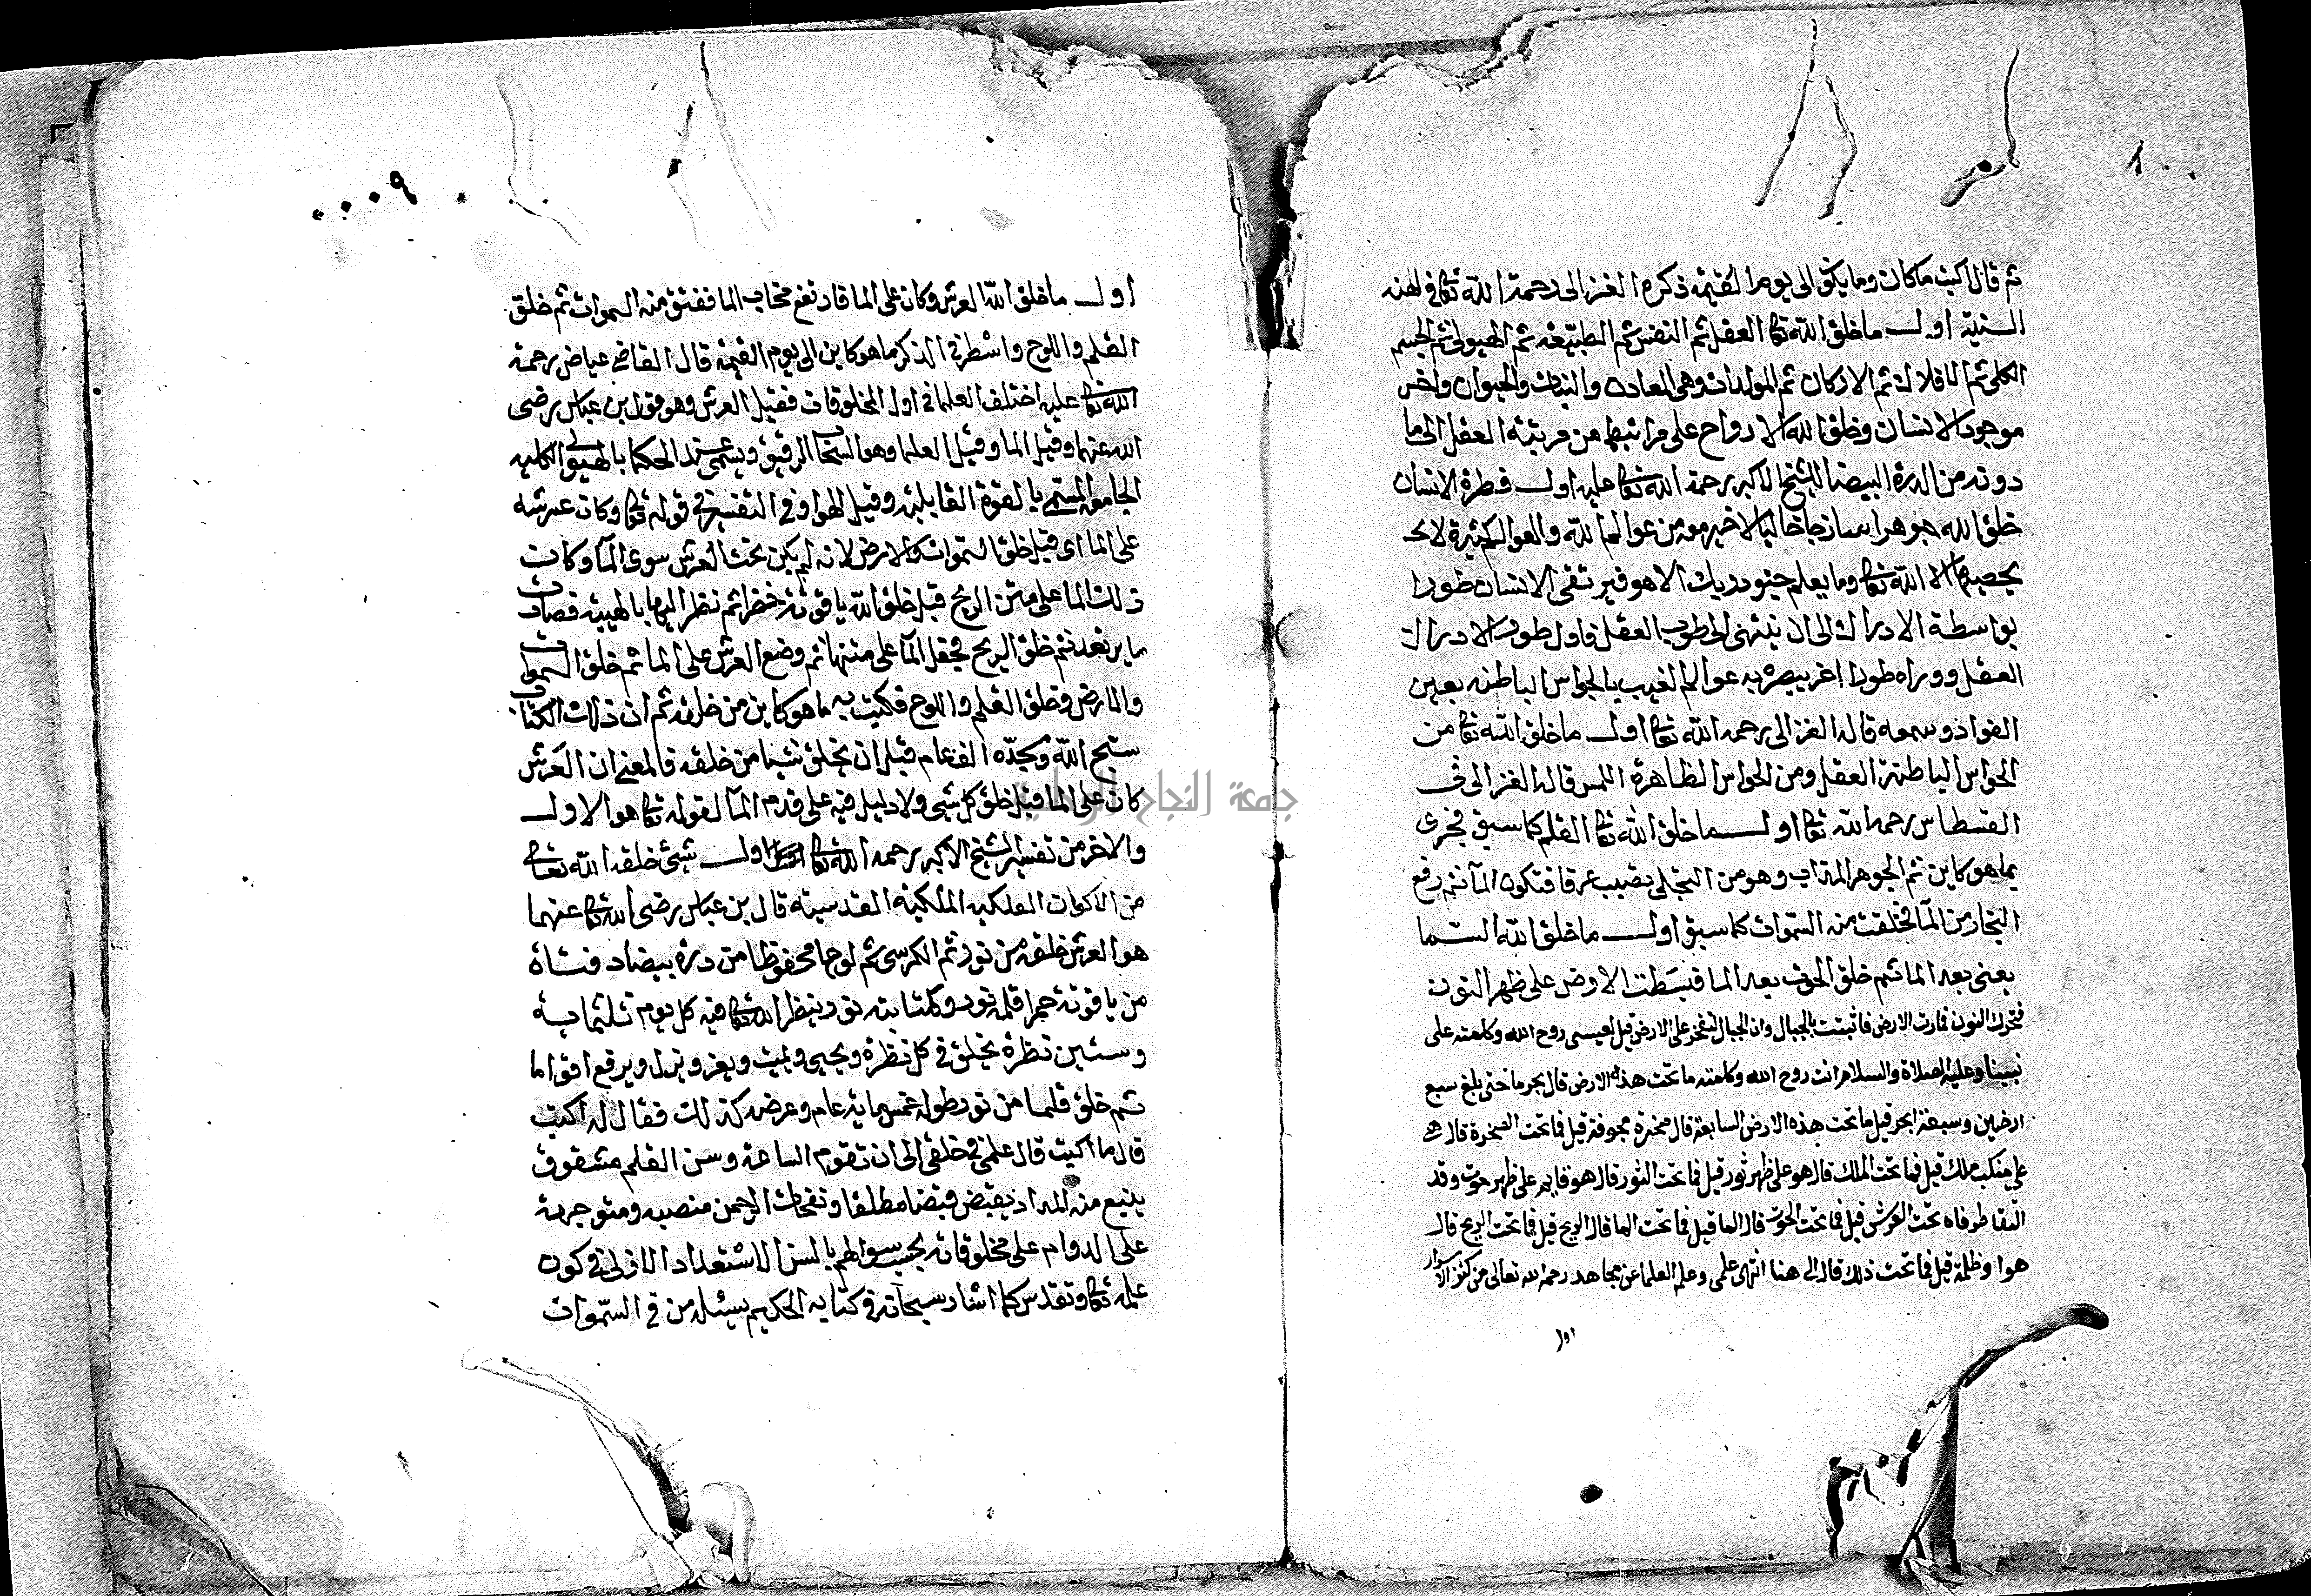 ثم قال اكتب ما كان وما يكون الى يوم القيمة ذكره الغزالى رحمة الله تعا فى
السنية اول ما خلق الله تعا العقل ثم النفس ثم الطبيعة ثم الهيولى ثم الجسم
الكلى ثم الافلاك ثم الاركان ثم المولدات وهى المعادن والنبات والحيوان واخر
موجود الانسان وخلق الله الارواح على مراتبها من مرتبة العقل الى ما
دونه من الدرة البيضا للشيخ الاكبر رحمة الله تعا عليه اول فطرة الانسان
خلق الله جوهرا ساذجا خاليا لا خبر معه من عوالم الله والعوالم كثيرة لا
يحصيها الا الله تعا وما يعلم جنود ربك الا هو فيرتقى الانسان طورا
بواسطة الادراك الى ان ينتهى الى طور العقل فاول طور الادراك
العقل ووراه طورا اخر يبصر به عوالم الغيب بالحواس الباطنه بعين
الفواد وسمعه قاله الغزالى رحمه الله تعا اول ما خلق الله تعا من
الحواس الباطنة العقل ومن الحواس الظاهرة اللمس قاله الغزالى فى
القسطاس رحمه الله تعا اول ما خلق الله تعا القلم كما سبق فجرى
بما هو كاين ثم الجوهر المذاب وهو من التجلى تصبب عرقا فتكون المآ ثم رفع
البخار من المآ فخلقت منه السموات كما سبق اول ما خلق الله السما
يعنى بعد الما ثم خلق الحوت بعد الما فبسطت الارض على ظهر النون
فتحرك النون فمارت الارض فاثبتت بالجبال وان الجبال لتفخر على الارض قيل لعيسى روح الله وكلمته على
نبينا وعليه الصلاة والسلام انت روح الله وكلمته ما تحت هذه الارض قال بحر ما حتى بلغ سبع
ارضين وسبعة ابحر قيل ما تحت هذه الارض السابعة قال صخرة مجوفة قيل فما تحت الصخرة قال هى
على منكب ملك قيل فما تحت الملك قال هو على ظهر ثور قيل فما تحت الثور قال هو قايم على ظهر حوت وقد
التقا طرفاه تحت العرش قيل فما تحت الحوت قال الما قيل فما تحت الما قال الريح قيل فما تحت الريح قال
هوا وظلمة قيل فما تحت ذلك قال الى هنا انتهى علمى وعلم العلما عن مجاهد رحمه الله تعالى من كنز الاسرار
اول
اول ما خلق الله العرش وكان على الما فارتفع بخار الما ففتق منه السموات ثم خلق
القلم واللوح واسطر فى الذكر ما هو كاين الى يوم القيمة قال القاضى عياض رحمة
الله تعا عليه اختلف العلما فى اول المخلوقات فقيل العرش وهو قول بن عباس رضى
الله عنهما وقيل الما وقيل العلما وهو السحاب الرقيق ويسمى عند الحكما بالهيولى الكليه
الجامعه المسمى بالقوة القابليه وقيل الهوا وفى التفسير فى قوله تعا وكان عرشه
على الما اى قبل خلق السموات والارض لانه لم يكن تحت العرش سوى المآ وكان
ذلك الما على متن الريح قبل خلق الله ياقوتة خضرا ثم نظر اليها بالهيبه فصارت
ما يرتعد ثم خلق الريح فجعل المآ على متنها ثم وضع العرش على الما ثم خلق السموات
والارض وخلق القلم واللوح فكتب به ما هو كاين من خلقه ثم ان ذلك الكتاب
سبح الله ومجده الف عام قبل ان يخلق شيا من خلقه فالمعنى ان العرش
كان على الما قبل خلق كل شى ولا دليل فيه على قدم المآ لقوله تعا هو الاول
والاخر من تفسير الشيخ الاكبر رحمه الله تعا اول شئ خلقه الله تعا
من الاكوان الفلكيه الملكية القدسية قال بن عباس رضى الله تعا عنهما
هو العرش خلقه من نور ثم الكرسى ثم لوحا محفوظا من درة بيضا دفتاه
من ياقوتة حمرا قلمه نور وكتابته نور ينظر الله تعا فيه كل يوم ثلثمايه
وستين نظرة يخلق فى كل نظرة ويحيى ويميت ويعز ويذل ويرفع اقواما
ثم خلق قلما من نور طوله خمسمايه عام وعرضه كذلك فقال له اكتب
قال ما اكتب قال علمى فى خلقى الى ان تقوم الساعة وسن القلم مشقوق
ينبع منه المداد يقبض قبضا مطلقا ونفحات الرحمن منصبه ومتوجهة
على الدوام على مخلوقاته يجيب سوالهم بالسن الاستعداد الازلى فى كون
علمه تعا وتقدس كما اشار سبحانه فى كتابه الحكيم يسئله من فى السموات